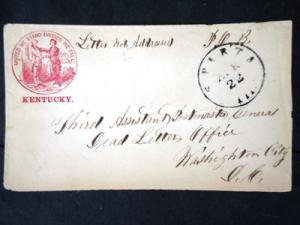 UNITED WE STAND DIVIDED WE FALL
KENTUCKY.
Letter not Addressed
SPARTA
22
Third Assistant Postmaster General
Dead Letter Office
Washington City
D.C.